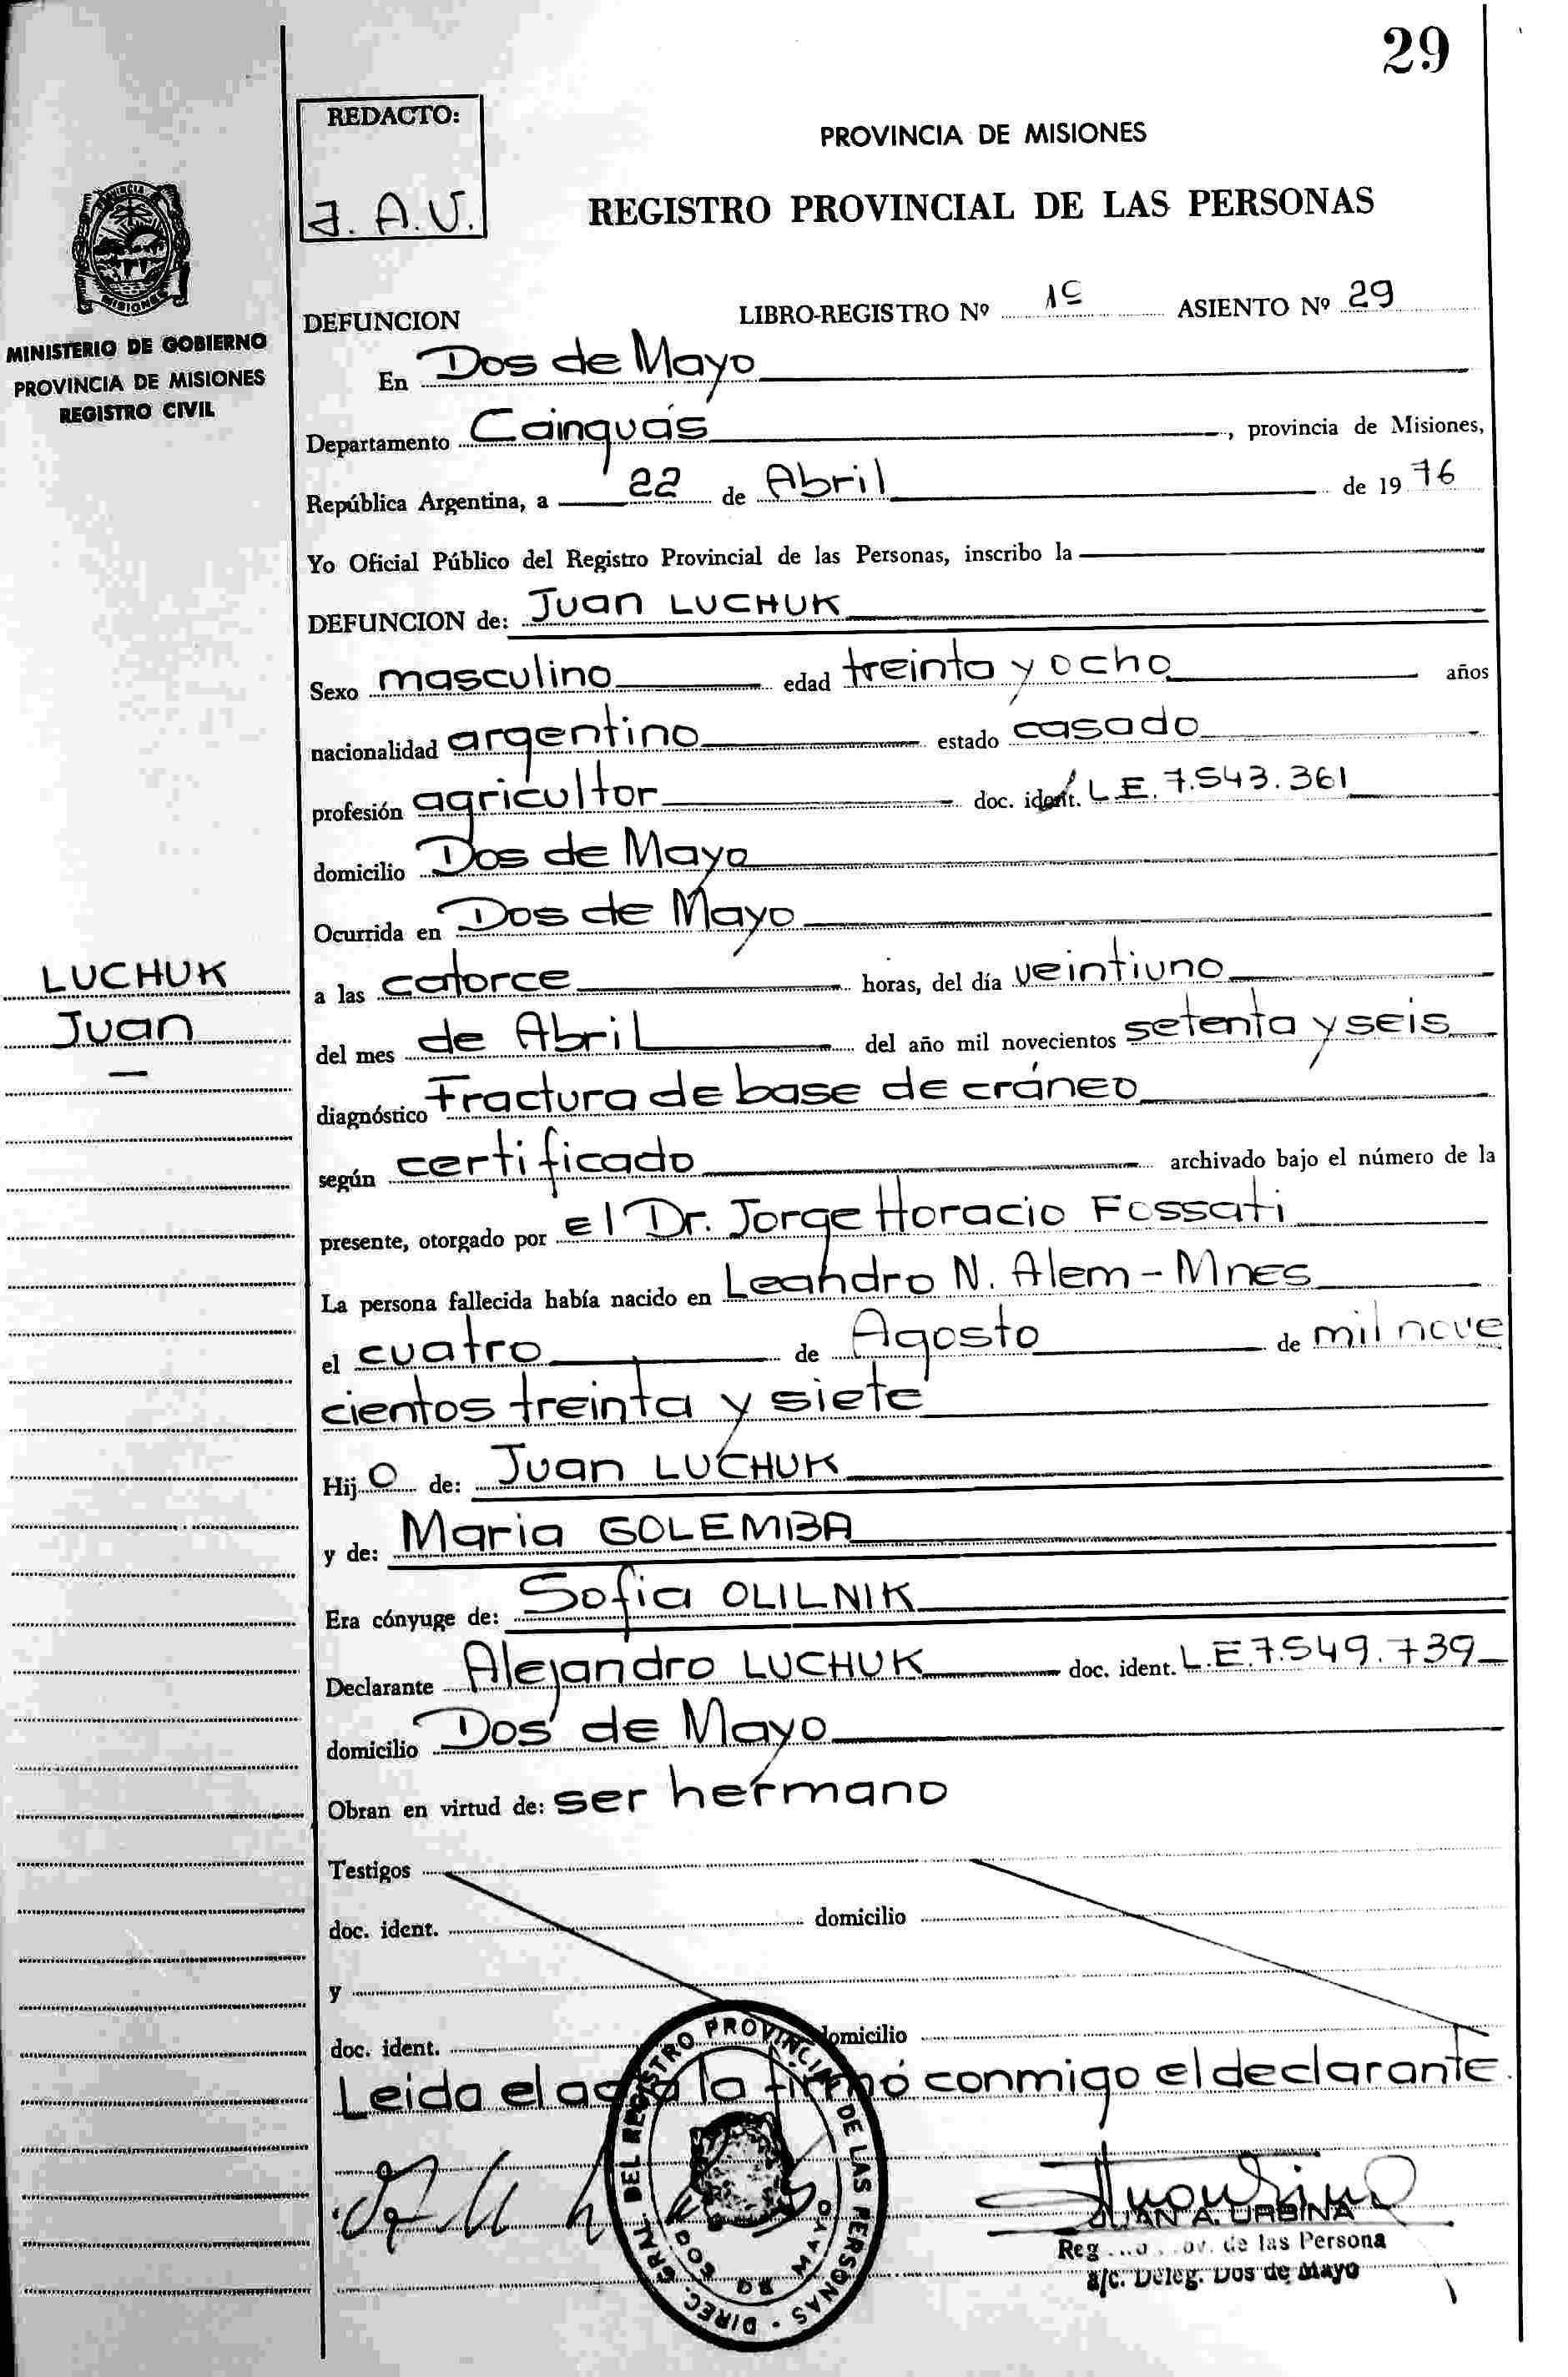 29
REDACTO:
J. A. U.
PROVINCIA DE MISIONES
REGISTRO PROVINCIAL DE LAS PERSONAS
PROVINCIA
MISIONES
MINISTERIO DE GOBIERNO
PROVINCIA DE MISIONES
REGISTRO CIVIL
DEFUNCION LIBRO-REGISTRO Nº 1º ASIENTO Nº 29
En Dos de Mayo
Departamento Cainguás, provincia de Misiones,
República Argentina, a 22 de Abril de 1976
Yo Oficial Público del Registro Provincial de las Personas, inscribo la
DEFUNCION de: Juan LUCHUK
Sexo masculino edad treinta y ocho años
nacionalidad argentino estado casado
profesión agricultor doc. ident. L.E. 7.543.361
domicilio Dos de Mayo
Ocurrida en Dos de Mayo
LUCHUK
Juan
a las catorce horas, del día veintiuno
del mes de Abril del año mil novecientos setenta y seis
diagnóstico Fractura de base de cráneo
según certificado archivado bajo el número de la
presente, otorgado por el Dr. Jorge Horacio Fossati
La persona fallecida había nacido en Leandro N. Alem - Mnes
el cuatro de Agosto de mil nove
cientos treinta y siete
Hijo de: Juan LUCHUK
y de: Maria GOLEMBA
Era cónyuge de: Sofia OLILNIK
Declarante Alejandro LUCHUK doc. ident. L.E. 7.549.739
domicilio Dos de Mayo
Obran en virtud de: ser hermano
Testigos
doc. ident. domicilio
y
doc. ident. domicilio
Leida el acta la firmó conmigo el declarante.
DIREC. GRAL. DEL REGISTRO PROVINCIAL DE LAS PERSONAS
DOS DE MAYO
JUAN A. URBINA
de las Persona
a/c. Deleg. Dos de Mayo